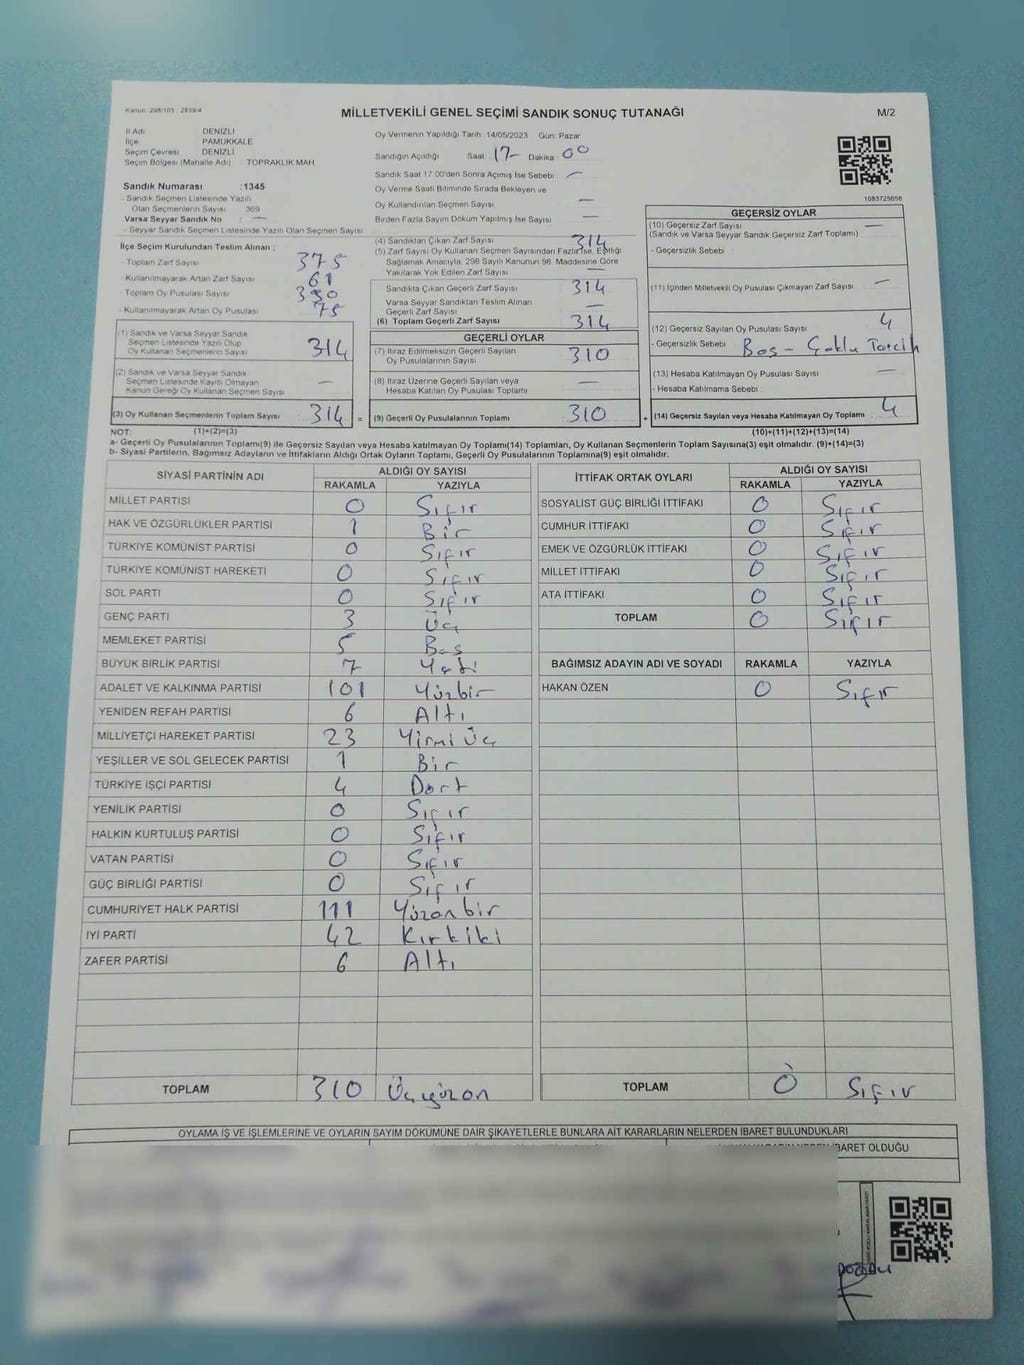 Kanun: 298/105 ; 2839/4
MİLLETVEKİLİ GENEL SEÇİMİ SANDIK SONUÇ TUTANAĞI
M/2
İl Adı DENİZLİ
İlçe PAMUKKALE
Seçim Çevresi DENİZLİ
Seçim Bölgesi (Mahalle Adı) TOPRAKLIK MAH.
Sandık Numarası :1345
- Sandık Seçmen Listesinde Yazılı
Olan Seçmenlerin Sayısı 369
Varsa Seyyar Sandık No : —
- Seyyar Sandık Seçmen Listesinde Yazılı Olan Seçmen Sayısı
Oy Vermenin Yapıldığı Tarih :14/05/2023 Gün: Pazar
Sandığın Açıldığı Saat :17- Dakika :00
Sandık Saat 17.00'den Sonra Açımış İse Sebebi : —
Oy Verme Saati Bitiminde Sırada Bekleyen ve
Oy Kullandırılan Seçmen Sayısı —
Birden Fazla Sayım Döküm Yapılmış İse Sayısı —
1083725656
İlçe Seçim Kurulundan Teslim Alınan ;
- Toplam Zarf Sayısı 375
- Kullanılmayarak Artan Zarf Sayısı 61
- Toplam Oy Pusulası Sayısı 390
- Kullanılmayarak Artan Oy Pusulası 75
(1) Sandık ve Varsa Seyyar Sandık
Seçmen Listesinde Yazılı Olup
Oy Kullanan Seçmenlerin Sayısı 314
(2) Sandık ve Varsa Seyyar Sandık
Seçmen Listesinde Kayıtlı Olmayan
Kanun Gereği Oy Kullanan Seçmen Sayısı —
(3) Oy Kullanan Seçmenlerin Toplam Sayısı 314 =
(4) Sandıktan Çıkan Zarf Sayısı 314
(5) Zarf Sayısı Oy Kullanan Seçmen Sayısından Fazla İse, Eşitliği
Sağlamak Amacıyla, 298 Sayılı Kanunun 98. Maddesine Göre
Yakılarak Yok Edilen Zarf Sayısı —
Sandıkta Çıkan Geçerli Zarf Sayısı 314
Varsa Seyyar Sandıktan Teslim Alınan
Geçerli Zarf Sayısı —
(6) Toplam Geçerli Zarf Sayısı 314
GEÇERLİ OYLAR
(7) İtiraz Edilmeksizin Geçerli Sayılan
Oy Pusulalarının Sayısı 310
(8) İtiraz Üzerine Geçerli Sayılan veya
Hesaba Katılan Oy Pusulalarının Sayısı —
(9) Geçerli Oy Pusulalarının Toplamı 310 +
GEÇERSİZ OYLAR
(10) Geçersiz Zarf Sayısı —
(Sandık ve Varsa Seyyar Sandık Geçersiz Zarf Toplamı)
- Geçersizlik Sebebi :
(11) İçinden Milletvekili Oy Pusulası Çıkmayan Zarf Sayısı —
(12) Geçersiz Sayılan Oy Pusulası Sayısı 4
- Geçersizlik Sebebi : Boş - Çoklu Tercih
(13) Hesaba Katılmayan Oy Pusulası Sayısı —
- Hesaba Katılmama Sebebi :
(14) Geçersiz Sayılan veya Hesaba Katılmayan Oy Toplamı 4
NOT: (1)+(2)=(3)
(10)+(11)+(12)+(13)=(14)
a- Geçerli Oy Pusulalarının Toplamı(9) ile Geçersiz Sayılan veya Hesaba katılmayan Oy Toplamı(14) Toplamları, Oy Kullanan Seçmenlerin Toplam Sayısına(3) eşit olmalıdır. (9)+(14)=(3)
b- Siyasi Partilerin, Bağımsız Adayların ve İttifakların Aldığı Ortak Oyların Toplamı, Geçerli Oy Pusulalarının Toplamına(9) eşit olmalıdır.
SİYASİ PARTİNİN ADI ALDIĞI OY SAYISI
RAKAMLA YAZIYLA
MİLLET PARTİSİ 0 Sıfır
HAK VE ÖZGÜRLÜKLER PARTİSİ 1 Bir
TÜRKİYE KOMÜNİST PARTİSİ 0 Sıfır
TÜRKİYE KOMÜNİST HAREKETİ 0 Sıfır
SOL PARTİ 0 Sıfır
GENÇ PARTİ 3 Üç
MEMLEKET PARTİSİ 5 Beş
BÜYÜK BİRLİK PARTİSİ 7 Yedi
ADALET VE KALKINMA PARTİSİ 101 Yüzbir
YENİDEN REFAH PARTİSİ 6 Altı
MİLLİYETÇİ HAREKET PARTİSİ 23 Yirmi Üç
YEŞİLLER VE SOL GELECEK PARTİSİ 1 Bir
TÜRKİYE İŞÇİ PARTİSİ 4 Dört
YENİLİK PARTİSİ 0 Sıfır
HALKIN KURTULUŞ PARTİSİ 0 Sıfır
VATAN PARTİSİ 0 Sıfır
GÜÇ BİRLİĞİ PARTİSİ 0 Sıfır
CUMHURİYET HALK PARTİSİ 111 Yüzonbir
İYİ PARTİ 42 Kırkiki
ZAFER PARTİSİ 6 Altı
TOPLAM 310 Üçyüzon
İTTİFAK ORTAK OYLARI ALDIĞI OY SAYISI
RAKAMLA YAZIYLA
SOSYALİST GÜÇ BİRLİĞİ İTTİFAKI 0 Sıfır
CUMHUR İTTİFAKI 0 Sıfır
EMEK VE ÖZGÜRLÜK İTTİFAKI 0 Sıfır
MİLLET İTTİFAKI 0 Sıfır
ATA İTTİFAKI 0 Sıfır
TOPLAM 0 Sıfır
BAĞIMSIZ ADAYIN ADI VE SOYADI RAKAMLA YAZIYLA
HAKAN ÖZEN 0 Sıfır
TOPLAM 0 Sıfır
OYLAMA İŞ VE İŞLEMLERİNE VE OYLARIN SAYIM DÖKÜMÜNE DAİR ŞİKAYETLERLE BUNLARA AİT KARARLARIN NELERDEN İBARET BULUNDUKLARI
İBARET OLDUĞU